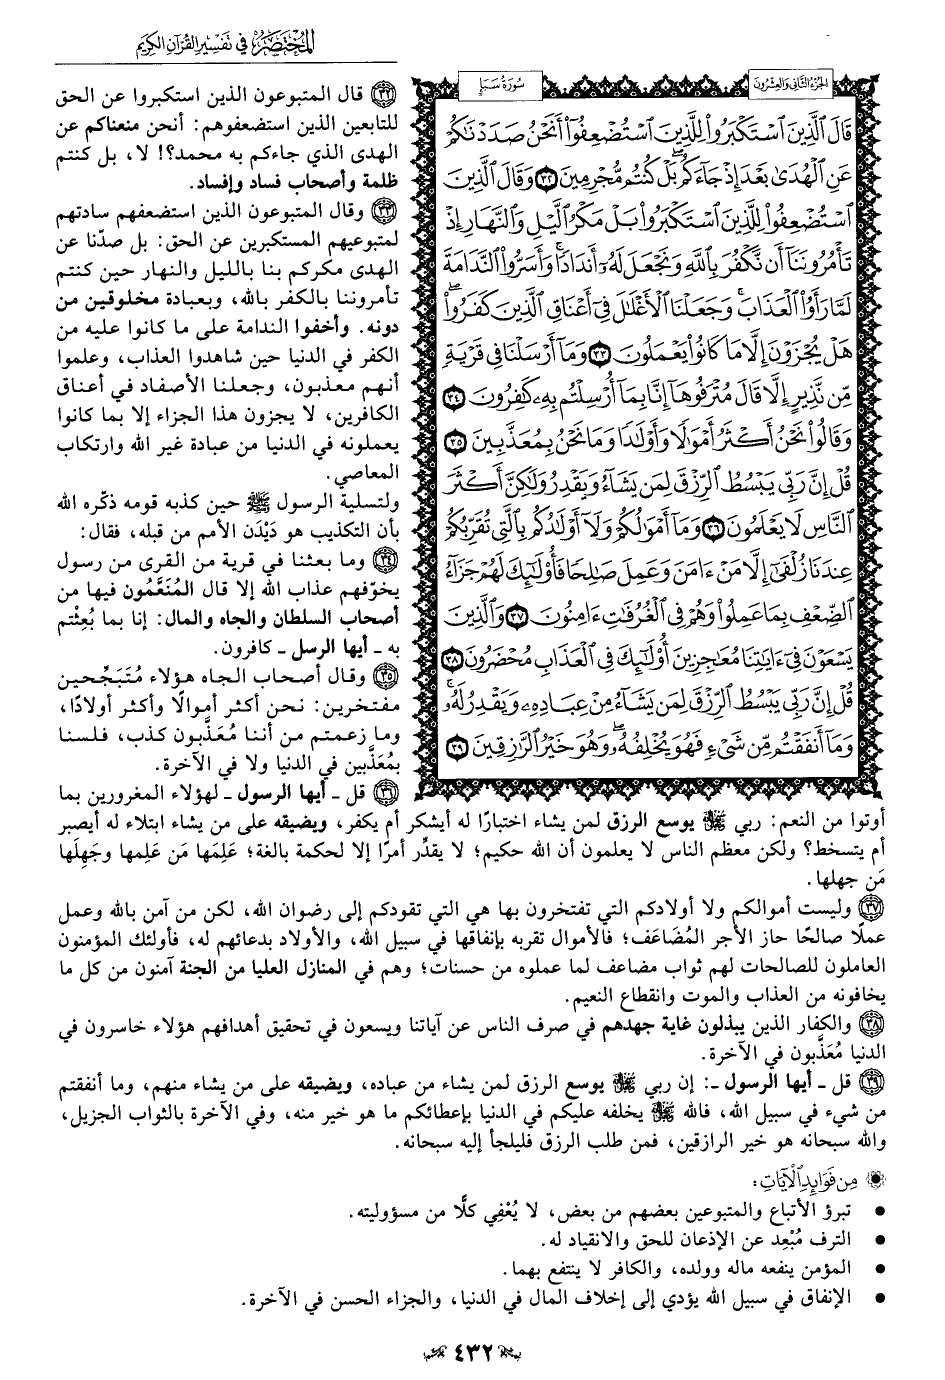 المختصر في تفسير القرآن الكريم
الجزء الثاني والعشرون
سورة سبإ
قَالَ ٱلَّذِينَ ٱسْتَكْبَرُوا۟ لِلَّذِينَ ٱسْتُضْعِفُوٓا۟ أَنَحْنُ صَدَدْنَٰكُمْ
عَنِ ٱلْهُدَىٰ بَعْدَ إِذْ جَآءَكُم ۖ بَلْ كُنتُم مُّجْرِمِينَ ٣٢ وَقَالَ ٱلَّذِينَ
ٱسْتُضْعِفُوا۟ لِلَّذِينَ ٱسْتَكْبَرُوا۟ بَلْ مَكْرُ ٱلَّيْلِ وَٱلنَّهَارِ إِذْ
تَأْمُرُونَنَآ أَن نَّكْفُرَ بِٱللَّهِ وَنَجْعَلَ لَهُۥٓ أَندَادًا ۚ وَأَسَرُّوا۟ ٱلنَّدَامَةَ
لَمَّا رَأَوُا۟ ٱلْعَذَابَ ۚ وَجَعَلْنَا ٱلْأَغْلَٰلَ فِىٓ أَعْنَاقِ ٱلَّذِينَ كَفَرُوا۟ ۖ
هَلْ يُجْزَوْنَ إِلَّا مَا كَانُوا۟ يَعْمَلُونَ ٣٣ وَمَآ أَرْسَلْنَا فِى قَرْيَةٍ
مِّن نَّذِيرٍ إِلَّا قَالَ مُتْرَفُوهَآ إِنَّا بِمَآ أُرْسِلْتُم بِهِۦ كَٰفِرُونَ ٣٤
وَقَالُوا۟ نَحْنُ أَكْثَرُ أَمْوَٰلًا وَأَوْلَٰدًا وَمَا نَحْنُ بِمُعَذَّبِينَ ٣٥
قُلْ إِنَّ رَبِّى يَبْسُطُ ٱلرِّزْقَ لِمَن يَشَآءُ وَيَقْدِرُ وَلَٰكِنَّ أَكْثَرَ
ٱلنَّاسِ لَا يَعْلَمُونَ ٣٦ وَمَآ أَمْوَٰلُكُمْ وَلَآ أَوْلَٰدُكُم بِٱلَّتِى تُقَرِّبُكُمْ
عِندَنَا زُلْفَىٰٓ إِلَّا مَنْ ءَامَنَ وَعَمِلَ صَٰلِحًا فَأُو۟لَٰٓئِكَ لَهُمْ جَزَآءُ
ٱلضِّعْفِ بِمَا عَمِلُوا۟ وَهُمْ فِى ٱلْغُرُفَٰتِ ءَامِنُونَ ٣٧ وَٱلَّذِينَ
يَسْعَوْنَ فِىٓ ءَايَٰتِنَا مُعَٰجِزِينَ أُو۟لَٰٓئِكَ فِى ٱلْعَذَابِ مُحْضَرُونَ ٣٨
قُلْ إِنَّ رَبِّى يَبْسُطُ ٱلرِّزْقَ لِمَن يَشَآءُ مِنْ عِبَادِهِۦ وَيَقْدِرُ لَهُۥ ۚ
وَمَآ أَنفَقْتُم مِّن شَىْءٍ فَهُوَ يُخْلِفُهُۥ ۖ وَهُوَ خَيْرُ ٱلرَّٰزِقِينَ ٣٩
٣٢ قال المتبوعون الذين استكبروا عن الحق
للتابعين الذين استضعفوهم: أنحن منعناكم عن
الهدى الذي جاءكم به محمد؟! لا، بل كنتم
ظلمة وأصحاب فساد وإفساد.
٣٣ وقال المتبوعون الذين استضعفهم سادتهم
لمتبوعيهم المستكبرين عن الحق: بل صدّنا عن
الهدى مكركم بنا بالليل والنهار حين كنتم
تأمروننا بالكفر بالله، وبعبادة مخلوقين من
دونه. وأخفوا الندامة على ما كانوا عليه من
الكفر في الدنيا حين شاهدوا العذاب، وعلموا
أنهم معذبون، وجعلنا الأصفاد في أعناق
الكافرين، لا يجزون هذا الجزاء إلا بما كانوا
يعملونه في الدنيا من عبادة غير الله وارتكاب
المعاصي.
ولتسلية الرسول ﷺ حين كذبه قومه ذكّره الله
بأن التكذيب هو دَيْدَن الأمم من قبله، فقال:
٣٤ وما بعثنا في قرية من القرى من رسول
يخوّفهم عذاب الله إلا قال المُنَعَّمُون فيها من
أصحاب السلطان والجاه والمال: إنا بما بُعِثْتم
به ـ أيها الرسل ـ كافرون.
٣٥ وقال أصحاب الجاه هؤلاء مُتَبَجِّحين
مفتخرين: نحن أكثر أموالًا وأكثر أولادًا،
وما زعمتم من أننا مُعَذَّبون كذب، فلسنا
بمُعَذَّبين في الدنيا ولا في الآخرة.
٣٦ قل ـ أيها الرسول ـ لهؤلاء المغرورين بما
أوتوا من النعم: ربي ﷻ يوسع الرزق لمن يشاء اختبارًا له أيشكر أم يكفر، ويضيقه على من يشاء ابتلاء له أيصبر
أم يتسخط؟ ولكن معظم الناس لا يعلمون أن الله حكيم؛ لا يقدِّر أمرًا إلا لحكمة بالغة؛ عَلِمَها مَن عَلِمها وجَهِلَها
مَن جهلها.
٣٧ وليست أموالكم ولا أولادكم التي تفتخرون بها هي التي تقودكم إلى رضوان الله، لكن من آمن بالله وعمل
عملًا صالحًا حاز الأجر المُضَاعَف؛ فالأموال تقربه بإنفاقها في سبيل الله، والأولاد بدعائهم له، فأولئك المؤمنون
العاملون للصالحات لهم ثواب مضاعف لما عملوه من حسنات؛ وهم في المنازل العليا من الجنة آمنون من كل ما
يخافونه من العذاب والموت وانقطاع النعيم.
٣٨ والكفار الذين يبذلون غاية جهدهم في صرف الناس عن آياتنا ويسعون في تحقيق أهدافهم هؤلاء خاسرون في
الدنيا مُعَذَّبون في الآخرة.
٣٩ قل ـ أيها الرسول ـ: إن ربي ﷻ يوسع الرزق لمن يشاء من عباده، ويضيقه على من يشاء منهم، وما أنفقتم
من شيء في سبيل الله، فالله ﷻ يخلفه عليكم في الدنيا بإعطائكم ما هو خير منه، وفي الآخرة بالثواب الجزيل،
والله سبحانه هو خير الرازقين، فمن طلب الرزق فليلجأ إليه سبحانه.
من فوائد الآيات:
• تبرؤ الأتباع والمتبوعين بعضهم من بعض، لا يُعْفِي كلًّا من مسؤوليته.
• الترف مُبْعِد عن الإذعان للحق والانقياد له.
• المؤمن ينفعه ماله وولده، والكافر لا ينتفع بهما.
• الإنفاق في سبيل الله يؤدي إلى إخلاف المال في الدنيا، والجزاء الحسن في الآخرة.
٤٣٢